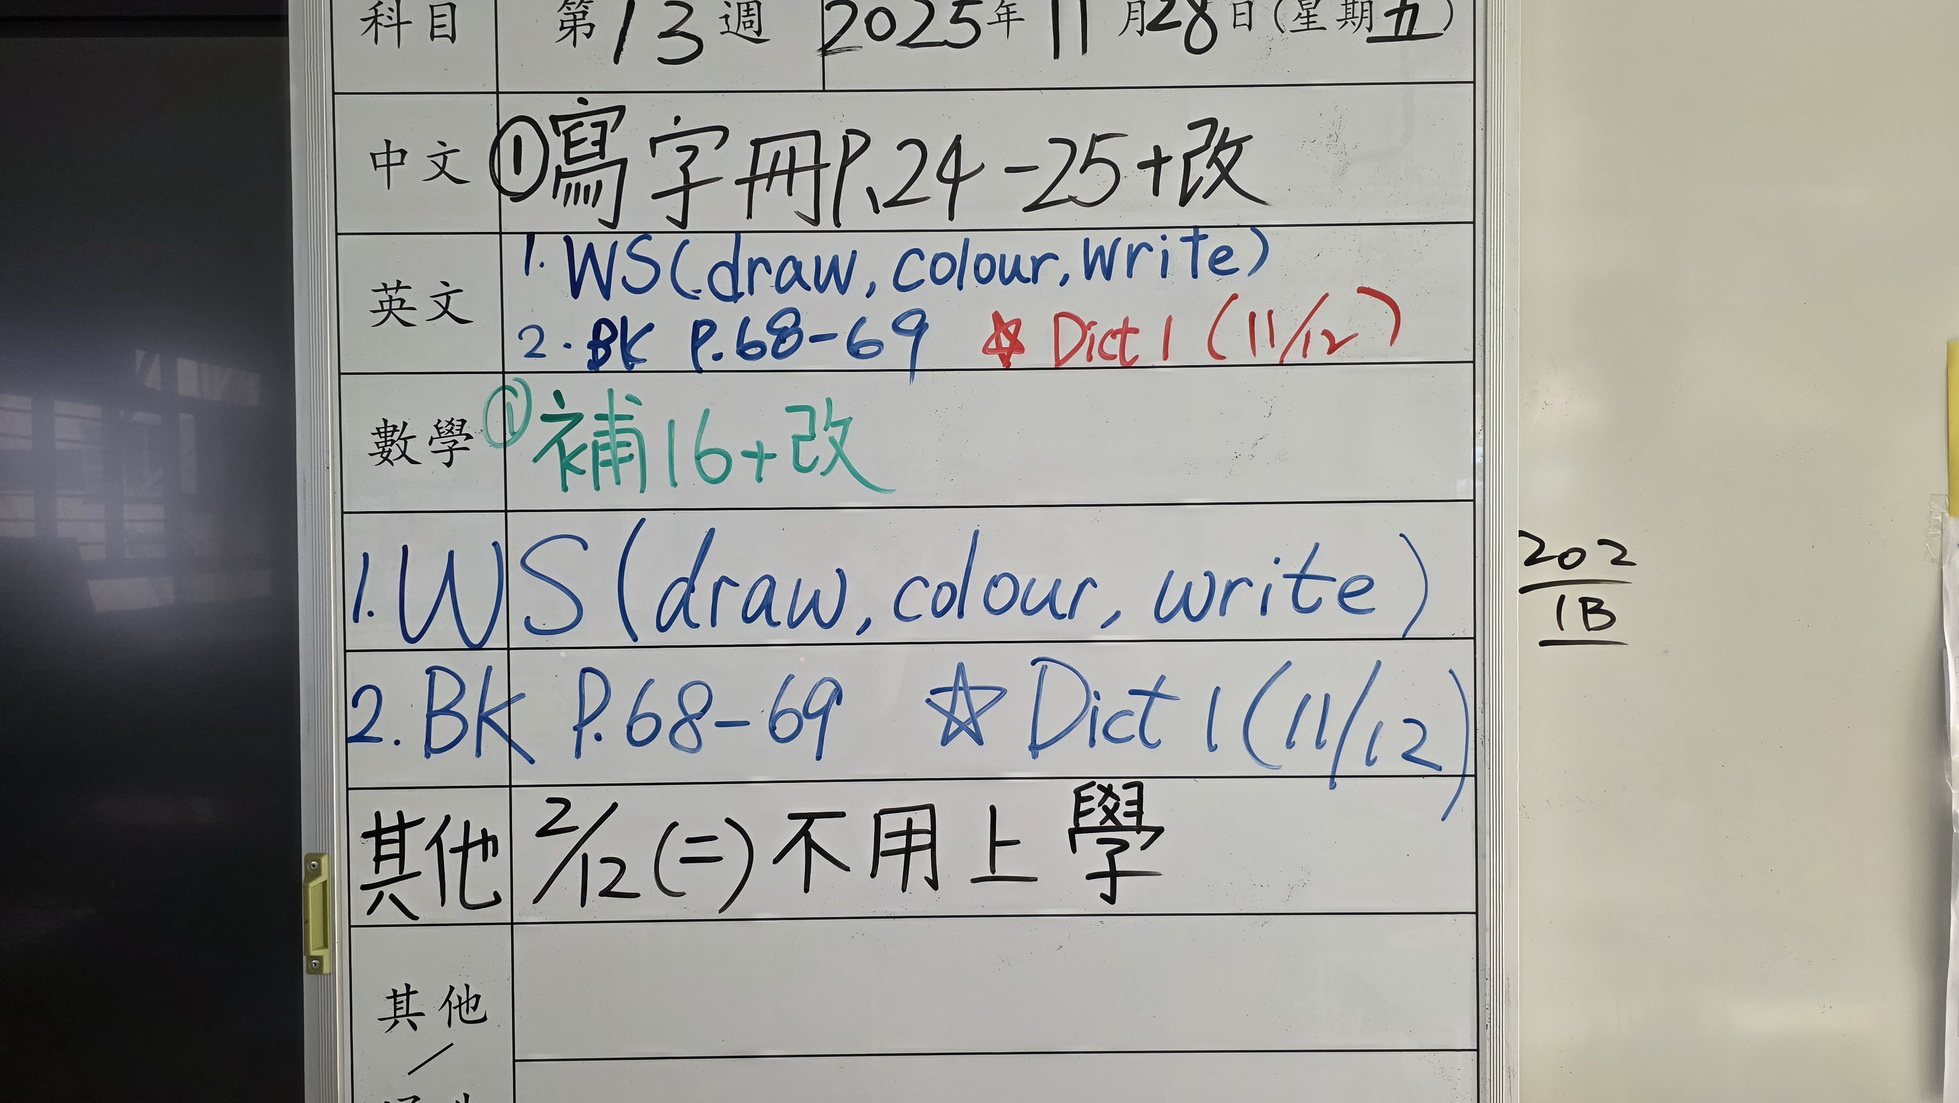 科目 第13週 2025年11月28日(星期五)
中文 ①寫字冊P.24-25+改
英文 1. WS(draw, colour, write)
2. BK P.68-69 ☆ Dict 1 (11/12)
數學 ①補16+改
1. WS(draw, colour, write)
2. BK P.68-69 ☆ Dict 1 (11/12)
其他 2/12(二)不用上學
其他
/
202
1B